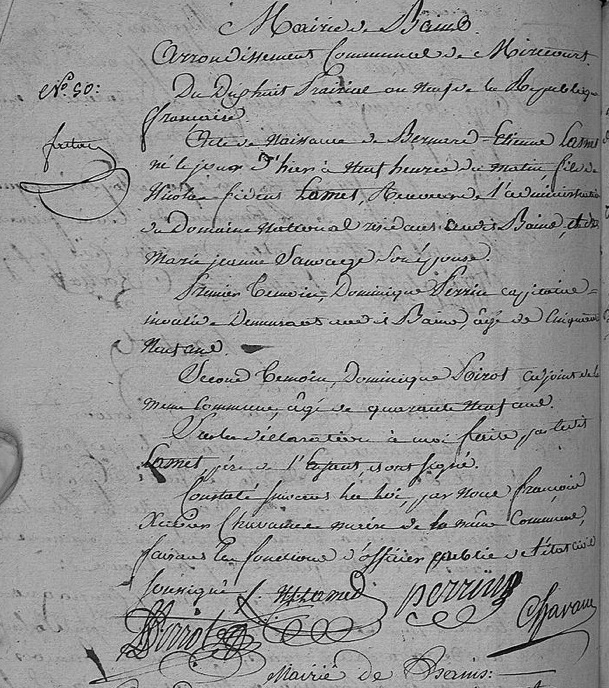 Mairie de Bains.
Arrondissement Communal de Mirecourt.
N.º 50:
Du Dixhuit Prairial an Neuf de la Republique
francaise
Acte de Naissance de Bernard-Etienne Lamet
né le jour d'hier à Neuf heures du matin, fils de
Nicolas fideus Lamet, Receveur de l'administration
du Domaine National residans audit Bains, et de
Marie jeanne Sauvage Son épouse.
Premier temoin, Dominique Perrin capitaine
invalide Demeurant audit Bains, âgé de Cinquante
Neuf ans.
Second temoin, Dominique Poirot adjoint de la
meme Commune, âgé de quarante Neuf ans.
Sur la déclaration à moi faite par ledit
Lamet, père de l'Enfant, et ont signé.
Constaté suivant la loi, par Nous françois
Xavier Chavanne maire de la même Commune,
faisant les fonctions d'officier public de l'état civil
soussigné
Lamet perrin
Poirot Chavane
Mairie de Bains: